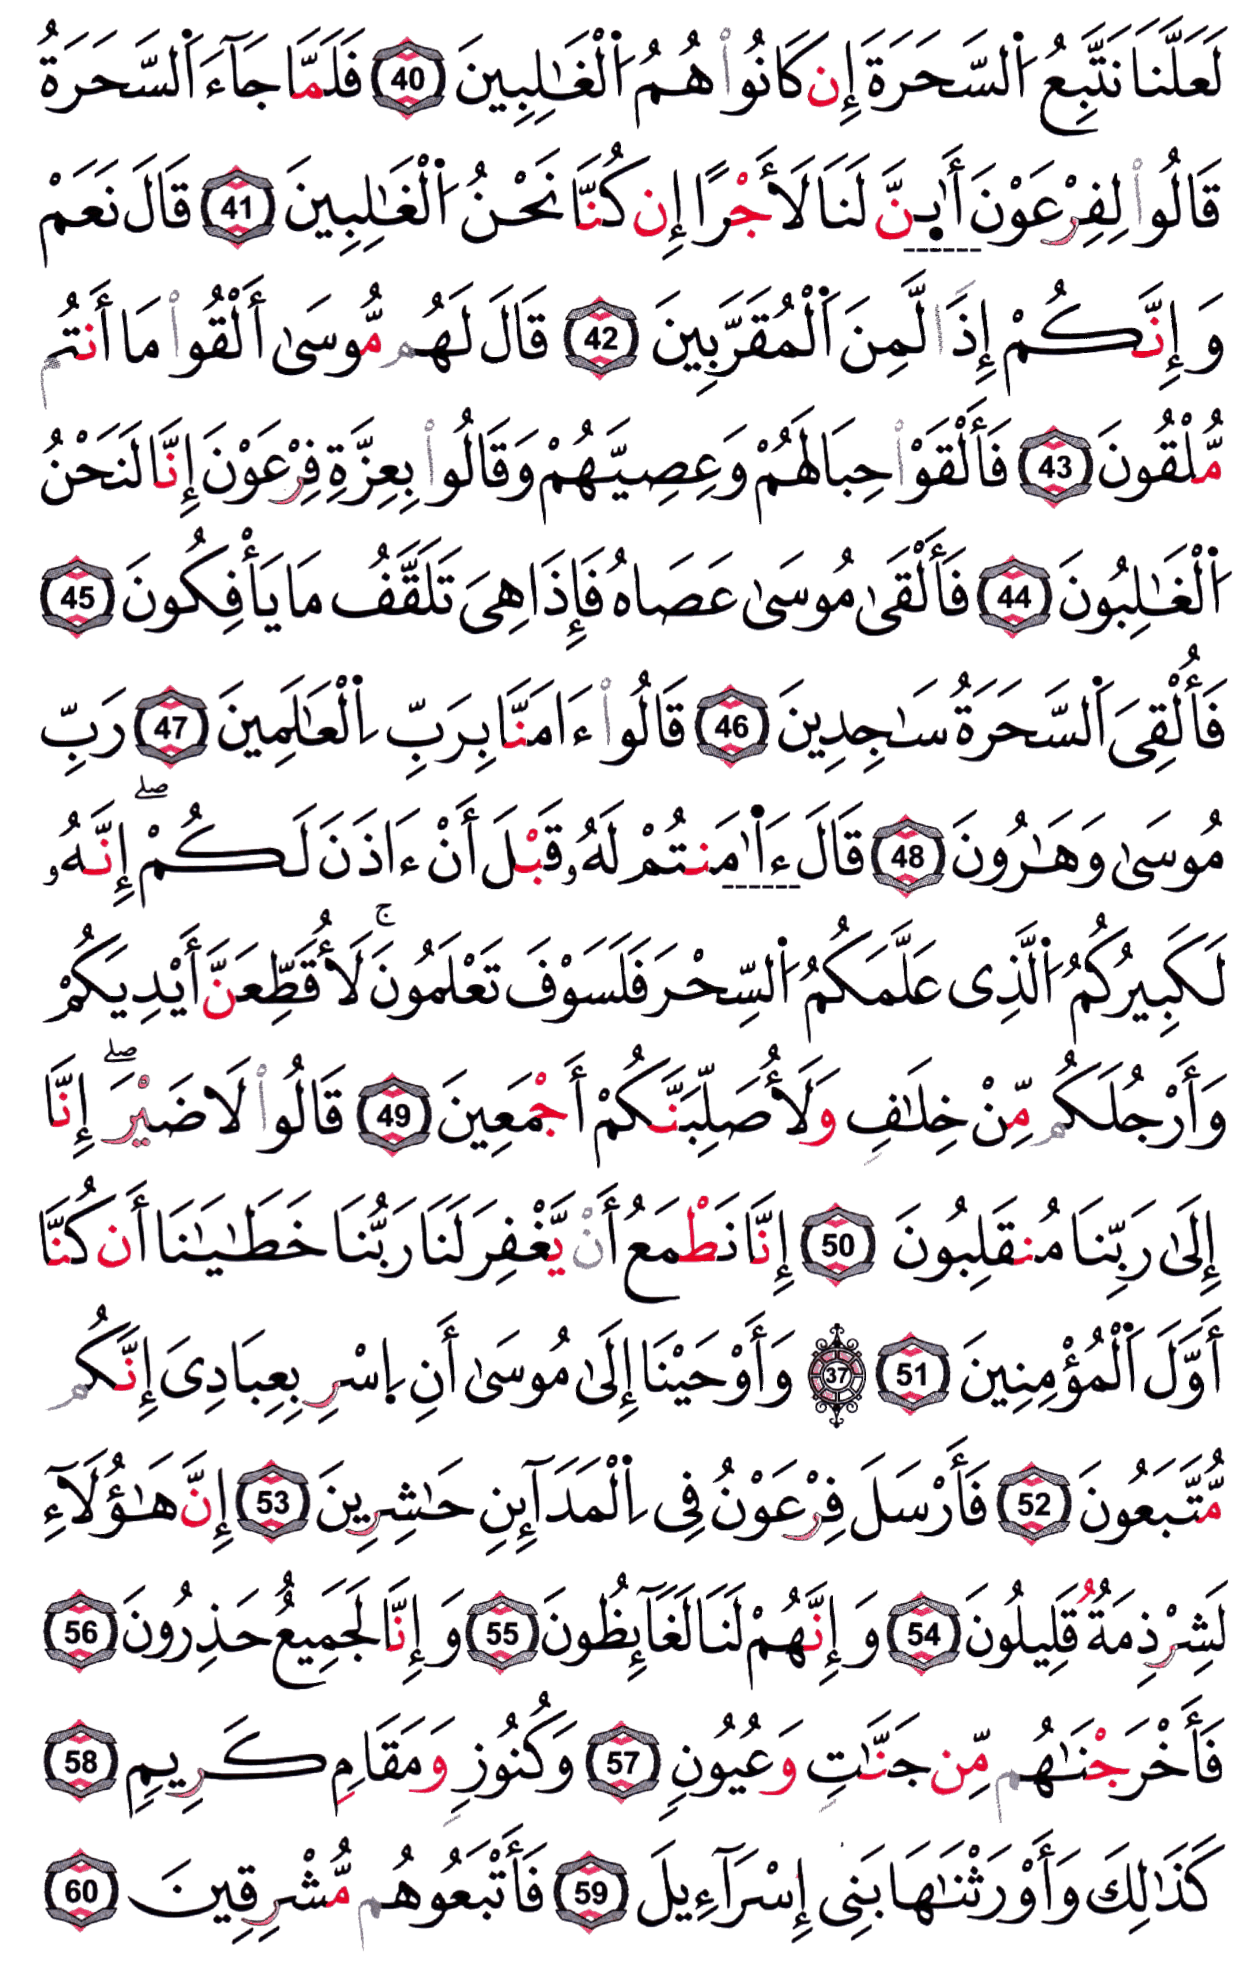 لَعَلَّنَا نَتَّبِعُ اَ۬لسَّحَرَةَ إِن كَانُواْ هُمُ اُ۬لْغَٰلِبِينَ 40 فَلَمَّا جَآءَ اَ۬لسَّحَرَةُ
قَالُواْ لِفِرْعَوْنَ أَٰي۪نَّ لَنَا لَأَجْرًا إِن كُنَّا نَحْنُ اُ۬لْغَٰلِبِينَ 41 قَالَ نَعَمْ
وَإِنَّكُمْ إِذًا لَّمِنَ اَ۬لْمُقَرَّبِينَ 42 قَالَ لَهُم مُّوسَىٰ أَلْقُواْ مَا أَنتُم
مُّلْقُونَ 43 فَأَلْقَوْاْ حِبَالَهُمْ وَعِصِيَّهُمْ وَقَالُواْ بِعِزَّةِ فِرْعَوْنَ إِنَّا لَنَحْنُ
اُ۬لْغَٰلِبُونَ 44 فَأَلْقَىٰ مُوسَىٰ عَصَاهُ فَإِذَا هِىَ تَلَقَّفُ مَا يَأْفِكُونَ 45
فَأُلْقِىَ اَ۬لسَّحَرَةُ سَٰجِدِينَ 46 قَالُواْ ءَامَنَّا بِرَبِّ اِ۬لْعَٰلَمِينَ 47 رَبِّ
مُوسَىٰ وَهَٰرُونَ 48 قَالَ ءَا۬مَنتُمْ لَهُۥ قَبْلَ أَنْ ءَاذَنَ لَكُمْۖ إِنَّهُۥ
لَكَبِيرُكُمُ اُ۬لَّذِى عَلَّمَكُمُ اُ۬لسِّحْرَ فَلَسَوْفَ تَعْلَمُونَۚ لَأُقَطِّعَنَّ أَيْدِيَكُمْ
وَأَرْجُلَكُم مِّنْ خِلَٰفٍ وَلَأُصَلِّبَنَّكُمْ أَجْمَعِينَ 49 قَالُواْ لَا ضَيْرَۖ إِنَّا
إِلَىٰ رَبِّنَا مُنقَلِبُونَ 50 إِنَّا نَطْمَعُ أَنْ يَّغْفِرَ لَنَا رَبُّنَا خَطَٰيَٰنَا أَن كُنَّا
أَوَّلَ اَ۬لْمُؤْمِنِينَ 51 37 وَأَوْحَيْنَا إِلَىٰ مُوسَىٰ أَنِ اِ۪سْرِ بِعِبَادِىَ إِنَّكُم
مُّتَّبَعُونَ 52 فَأَرْسَلَ فِرْعَوْنُ فِى اِ۬لْمَدَآئِنِ حَٰشِرِينَ 53 إِنَّ هَٰؤُلَآءِ
لَشِرْذِمَةٌ قَلِيلُونَ 54 وَإِنَّهُمْ لَنَا لَغَآئِظُونَ 55 وَإِنَّا لَجَمِيعٌ حَذِرُونَ 56
فَأَخْرَجْنَٰهُم مِّن جَنَّٰتٍ وَعُيُونٍ 57 وَكُنُوزٍ وَمَقَامٍ كَرِيمٍ 58
كَذَٰلِكَ وَأَوْرَثْنَٰهَا بَنِى إِسْرَآءِيلَ 59 فَأَتْبَعُوهُم مُّشْرِقِينَ 60